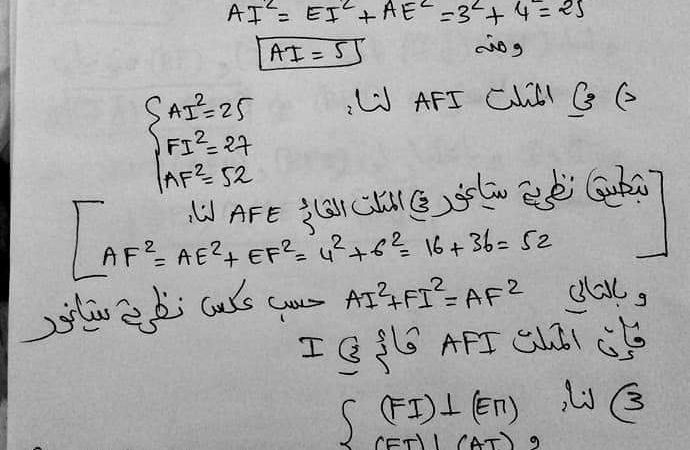 AI² = EI² + AE² = 3² + 4² = 25
ومنه AI = 5
د) في المثلث AFI لنا:
AI² = 25
FI² = 27
AF² = 52
بتطبيق نظرية بيتاغور في المثلث القائم AFE لنا:
AF² = AE² + EF² = 4² + 6² = 16 + 36 = 52
و بالتالي AI² + FI² = AF² حسب عكس نظرية بيتاغور
فإن المثلث AFI قائم في I
3) لنا:
(FI) ⊥ (EM)
و (FI) ⊥ (AI)